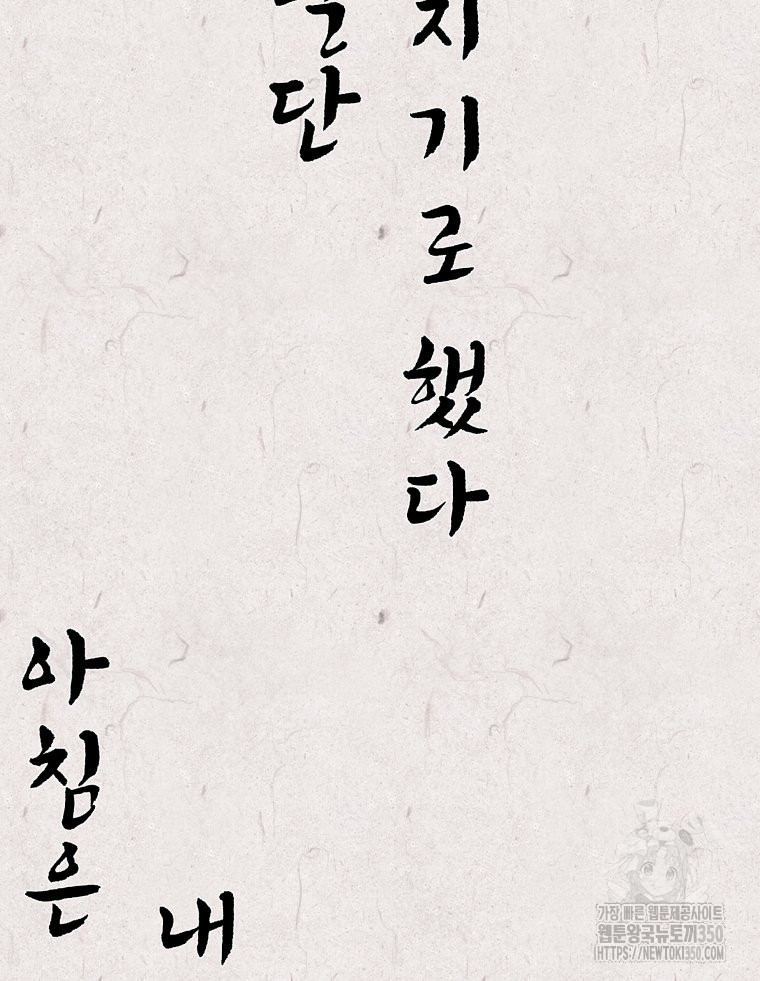 지기로했다
단
내
아침은
가장 빠른 웹툰제공사이트
웹툰왕국뉴토끼350
HTTPS://NEWTOKI350.COM